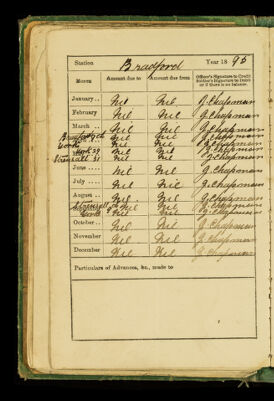 Station Bradford Year 1895
MONTH Amount due to Amount due from Officer's Signature to Credit Soldier's Signature to Debit or if there is no balance.
January... Nil Nil G. Chapman
February Nil Nil G. Chapman
March ... Nil Nil G. Chapman
Bradford Nil Nil G. Chapman
Nil Nil G. Chapman
29 Nil Nil G. Chapman
Strensall 31 Nil Nil G. Chapman
June .... Nil Nil G. Chapman
July .... Nil Nil G. Chapman
August... Nil Nil G. Chapman
Strensall Nil Nil G. Chapman
Nil Nil G. Chapman
October.. Nil Nil G. Chapman
November Nil Nil G. Chapman
December Nil Nil G. Chapman
Particulars of Advances, &c., made to